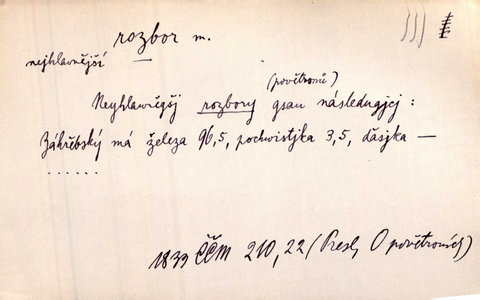 rozbor m.
nejhlavnější
(povětronů)
Neyhlawněgšj rozbory gsau následugjcj :
Záhřebský má železa 96,5, pochwistjka 3,5, ďasjka —
......
1839 ČČM 210,22 (Presl, O povětroních)